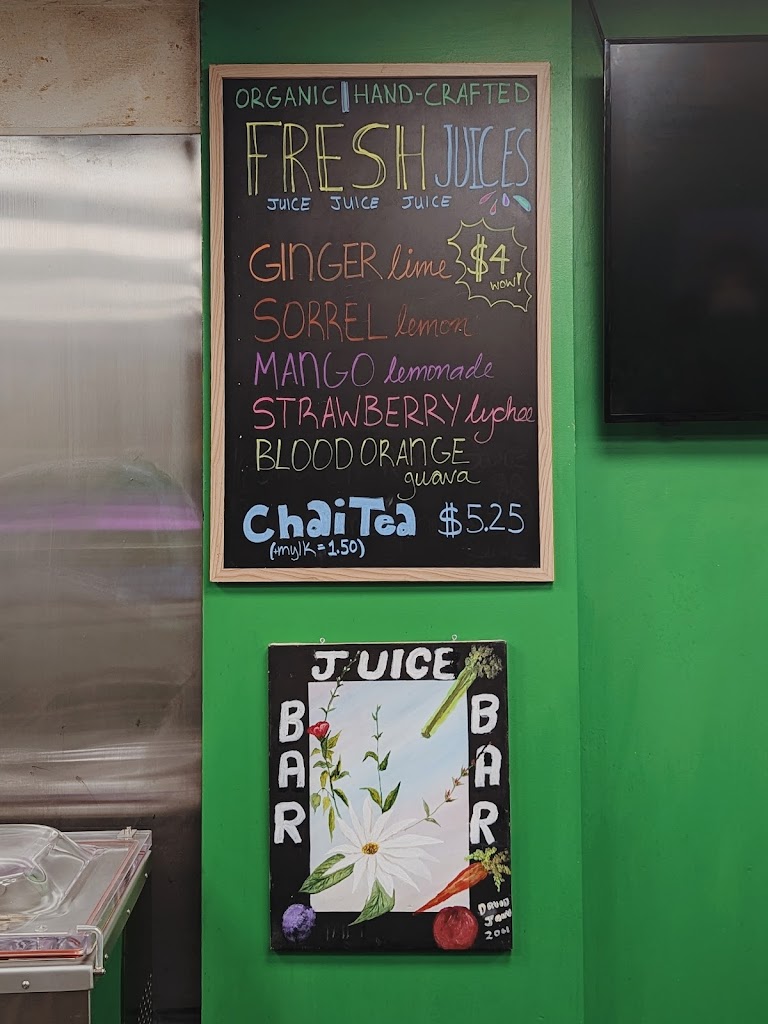 ORGANIC | HAND-CRAFTED
FRESH JUICES
JUICE JUICE JUICE
GINGER lime $4
wow!
SORREL lemon
MANGO lemonade
STRAWBERRY lychee
BLOOD ORANGE
guava
Chai Tea $5.25
(+mylk = 1.50)
JUICE
BAR
BAR
DAVID
2001